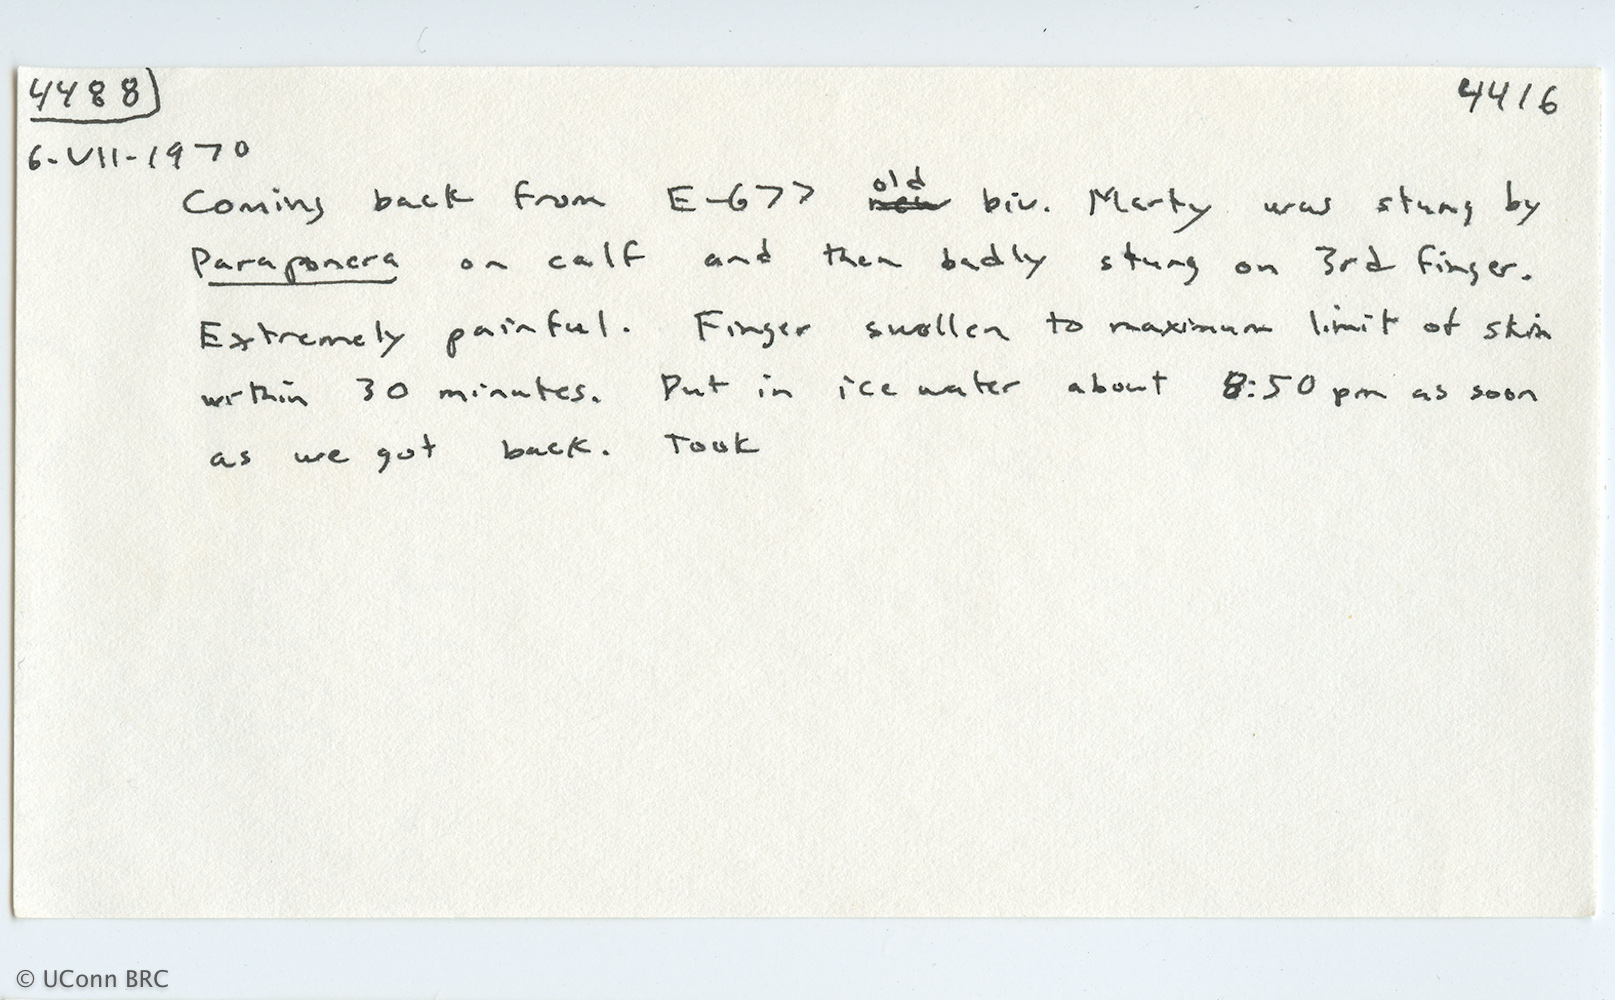 4488) 4416
6-VII-1970
Coming back from E-677 old biv. Marty was stung by
Paraponera on calf and then badly stung on 3rd finger.
Extremely painful. Finger swollen to maximum limit of skin
within 30 minutes. Put in ice water about 8:50 pm as soon
as we got back. Took
© UConn BRC